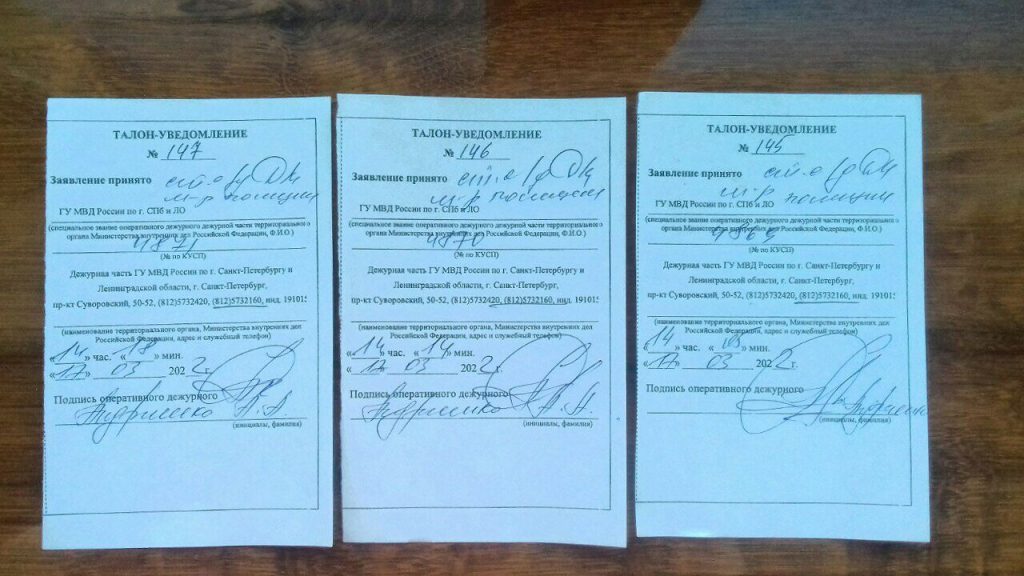 ТАЛОН-УВЕДОМЛЕНИЕ
№ 147
Заявление принято
м-р полиции
ГУ МВД России по г. СПб и ЛО
(специальное звание оперативного дежурного дежурной части территориального
органа Министерства внутренних дел Российской Федерации, Ф.И.О.)
4871
(№ по КУСП)
Дежурная часть ГУ МВД России по г. Санкт-Петербургу и
Ленинградской области, г. Санкт-Петербург,
пр-кт Суворовский, 50-52, (812)5732420, (812)5732160, инд. 19101
(наименование территориального органа, Министерства внутренних дел
Российской Федерации, адрес и служебный телефон)
«14» час. «18» мин.
«17» 03 2022 г.
Подпись оперативного дежурного
А.А.
(инициалы, фамилия)
ТАЛОН-УВЕДОМЛЕНИЕ
№ 146
Заявление принято
м-р полиции
ГУ МВД России по г. СПб и ЛО
(специальное звание оперативного дежурного дежурной части территориального
органа Министерства внутренних дел Российской Федерации, Ф.И.О.)
4870
(№ по КУСП)
Дежурная часть ГУ МВД России по г. Санкт-Петербургу и
Ленинградской области, г. Санкт-Петербург,
пр-кт Суворовский, 50-52, (812)5732420, (812)5732160, инд. 19101
(наименование территориального органа, Министерства внутренних дел
Российской Федерации, адрес и служебный телефон)
«14» час. «14» мин.
«17» 03 2022 г.
Подпись оперативного дежурного
А.А.
(инициалы, фамилия)
ТАЛОН-УВЕДОМЛЕНИЕ
№ 145
Заявление принято
м-р полиции
ГУ МВД России по г. СПб и ЛО
(специальное звание оперативного дежурного дежурной части территориального
органа Министерства внутренних дел Российской Федерации, Ф.И.О.)
4869
(№ по КУСП)
Дежурная часть ГУ МВД России по г. Санкт-Петербургу и
Ленинградской области, г. Санкт-Петербург,
пр-кт Суворовский, 50-52, (812)5732420, (812)5732160, инд. 19101
(наименование территориального органа, Министерства внутренних дел
Российской Федерации, адрес и служебный телефон)
«14» час. мин.
«17» 03 2022 г.
Подпись оперативного дежурного
(инициалы, фамилия)